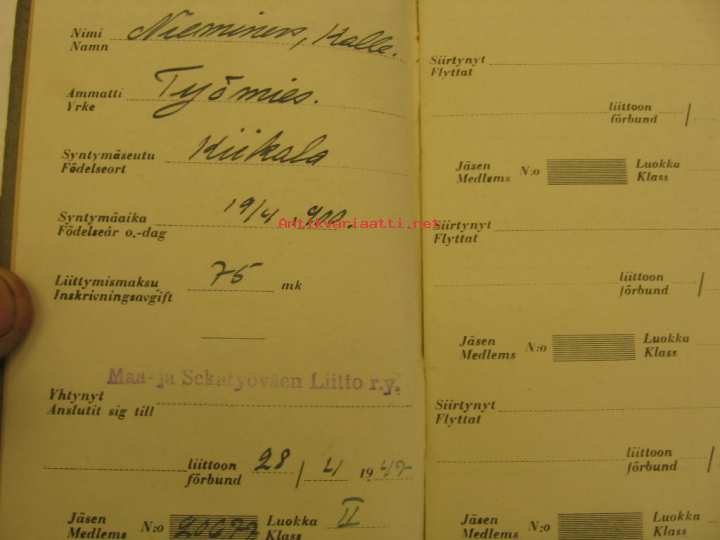 Nimi
Namn
Nieminen, Kalle.
Ammatti
Yrke
Työmies.
Syntymäseutu
Födelseort
Kiikala
Syntymäaika
Födelseår o.-dag
19/4 1900.
Liittymismaksu
Inskrivningsavgift
75 mk
Maa- ja Sekatyöväen Liitto r.y.
Yhtynyt
Anslutit sig till
liittoon
förbund
28 / 4 19
Jäsen
Medlems
N:o
Luokka
Klass
II
Siirtynyt
Flyttat
liittoon
förbund /
Jäsen
Medlems
N:o
Luokka
Klass
Siirtynyt
Flyttat
liittoon
förbund /
Jäsen
Medlems
N:o
Luokka
Klass
Siirtynyt
Flyttat
liittoon
förbund /
Jäsen
Medlems
N:o
Luokka
Klass
Antikvariaatti.net